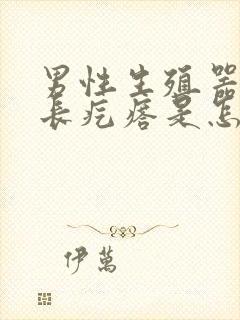 男性生殖器
长疙瘩是怎
伊萬